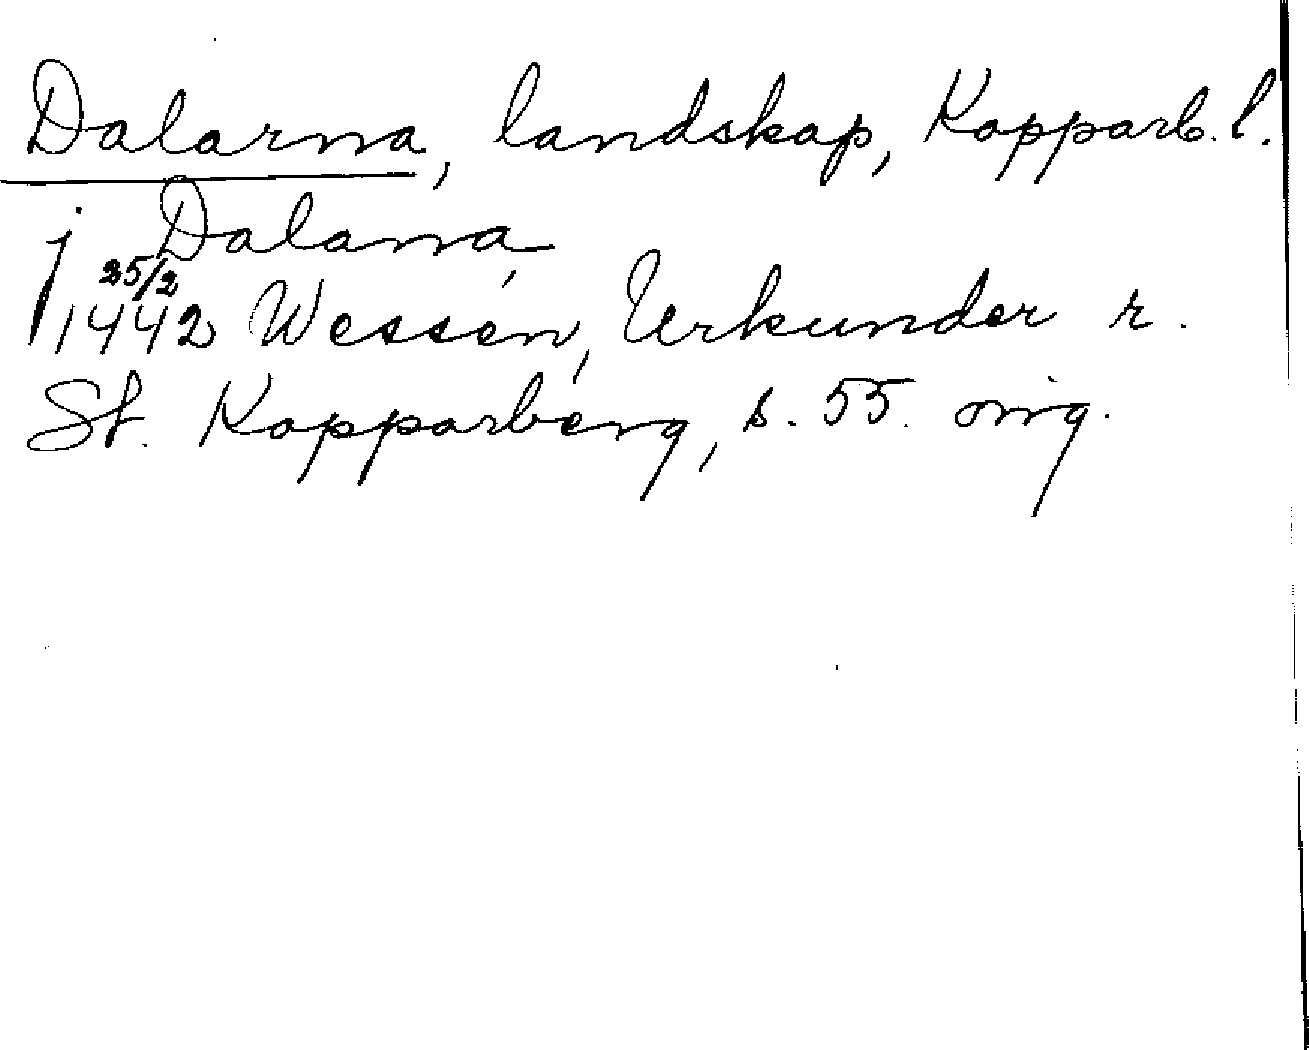 Dalarna, landskap, Kopparb. l.
j Dalana
25/2
1442 Wessén, Urkunder r.
St. Kopparberg, s. 55. orig.